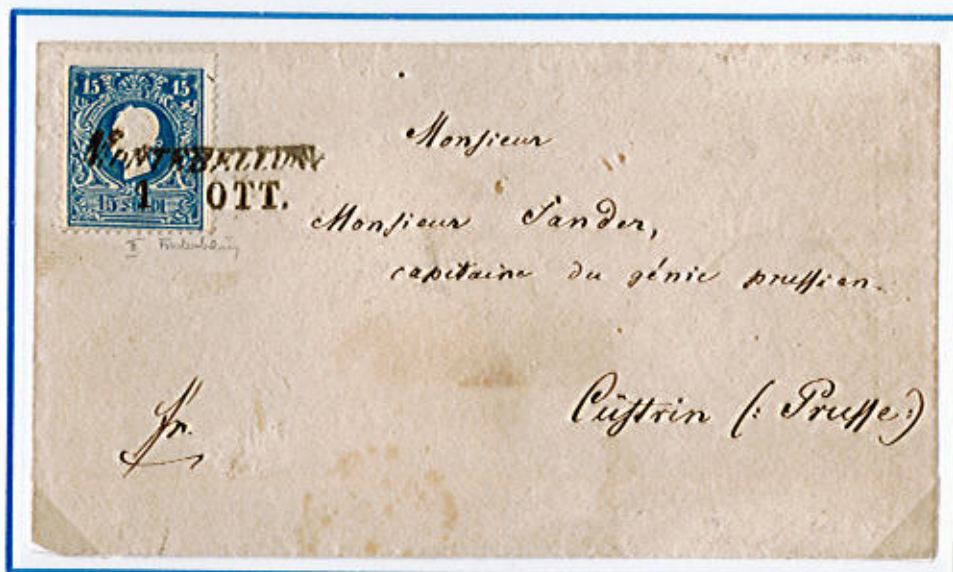 15 15
MONTEBELLUNA
1 OTT.
15 SOLDI
II
Monsieur
Monsieur Sander,
capitaine du génie prussien.
Cüstrin (: Prusse :)
fr.